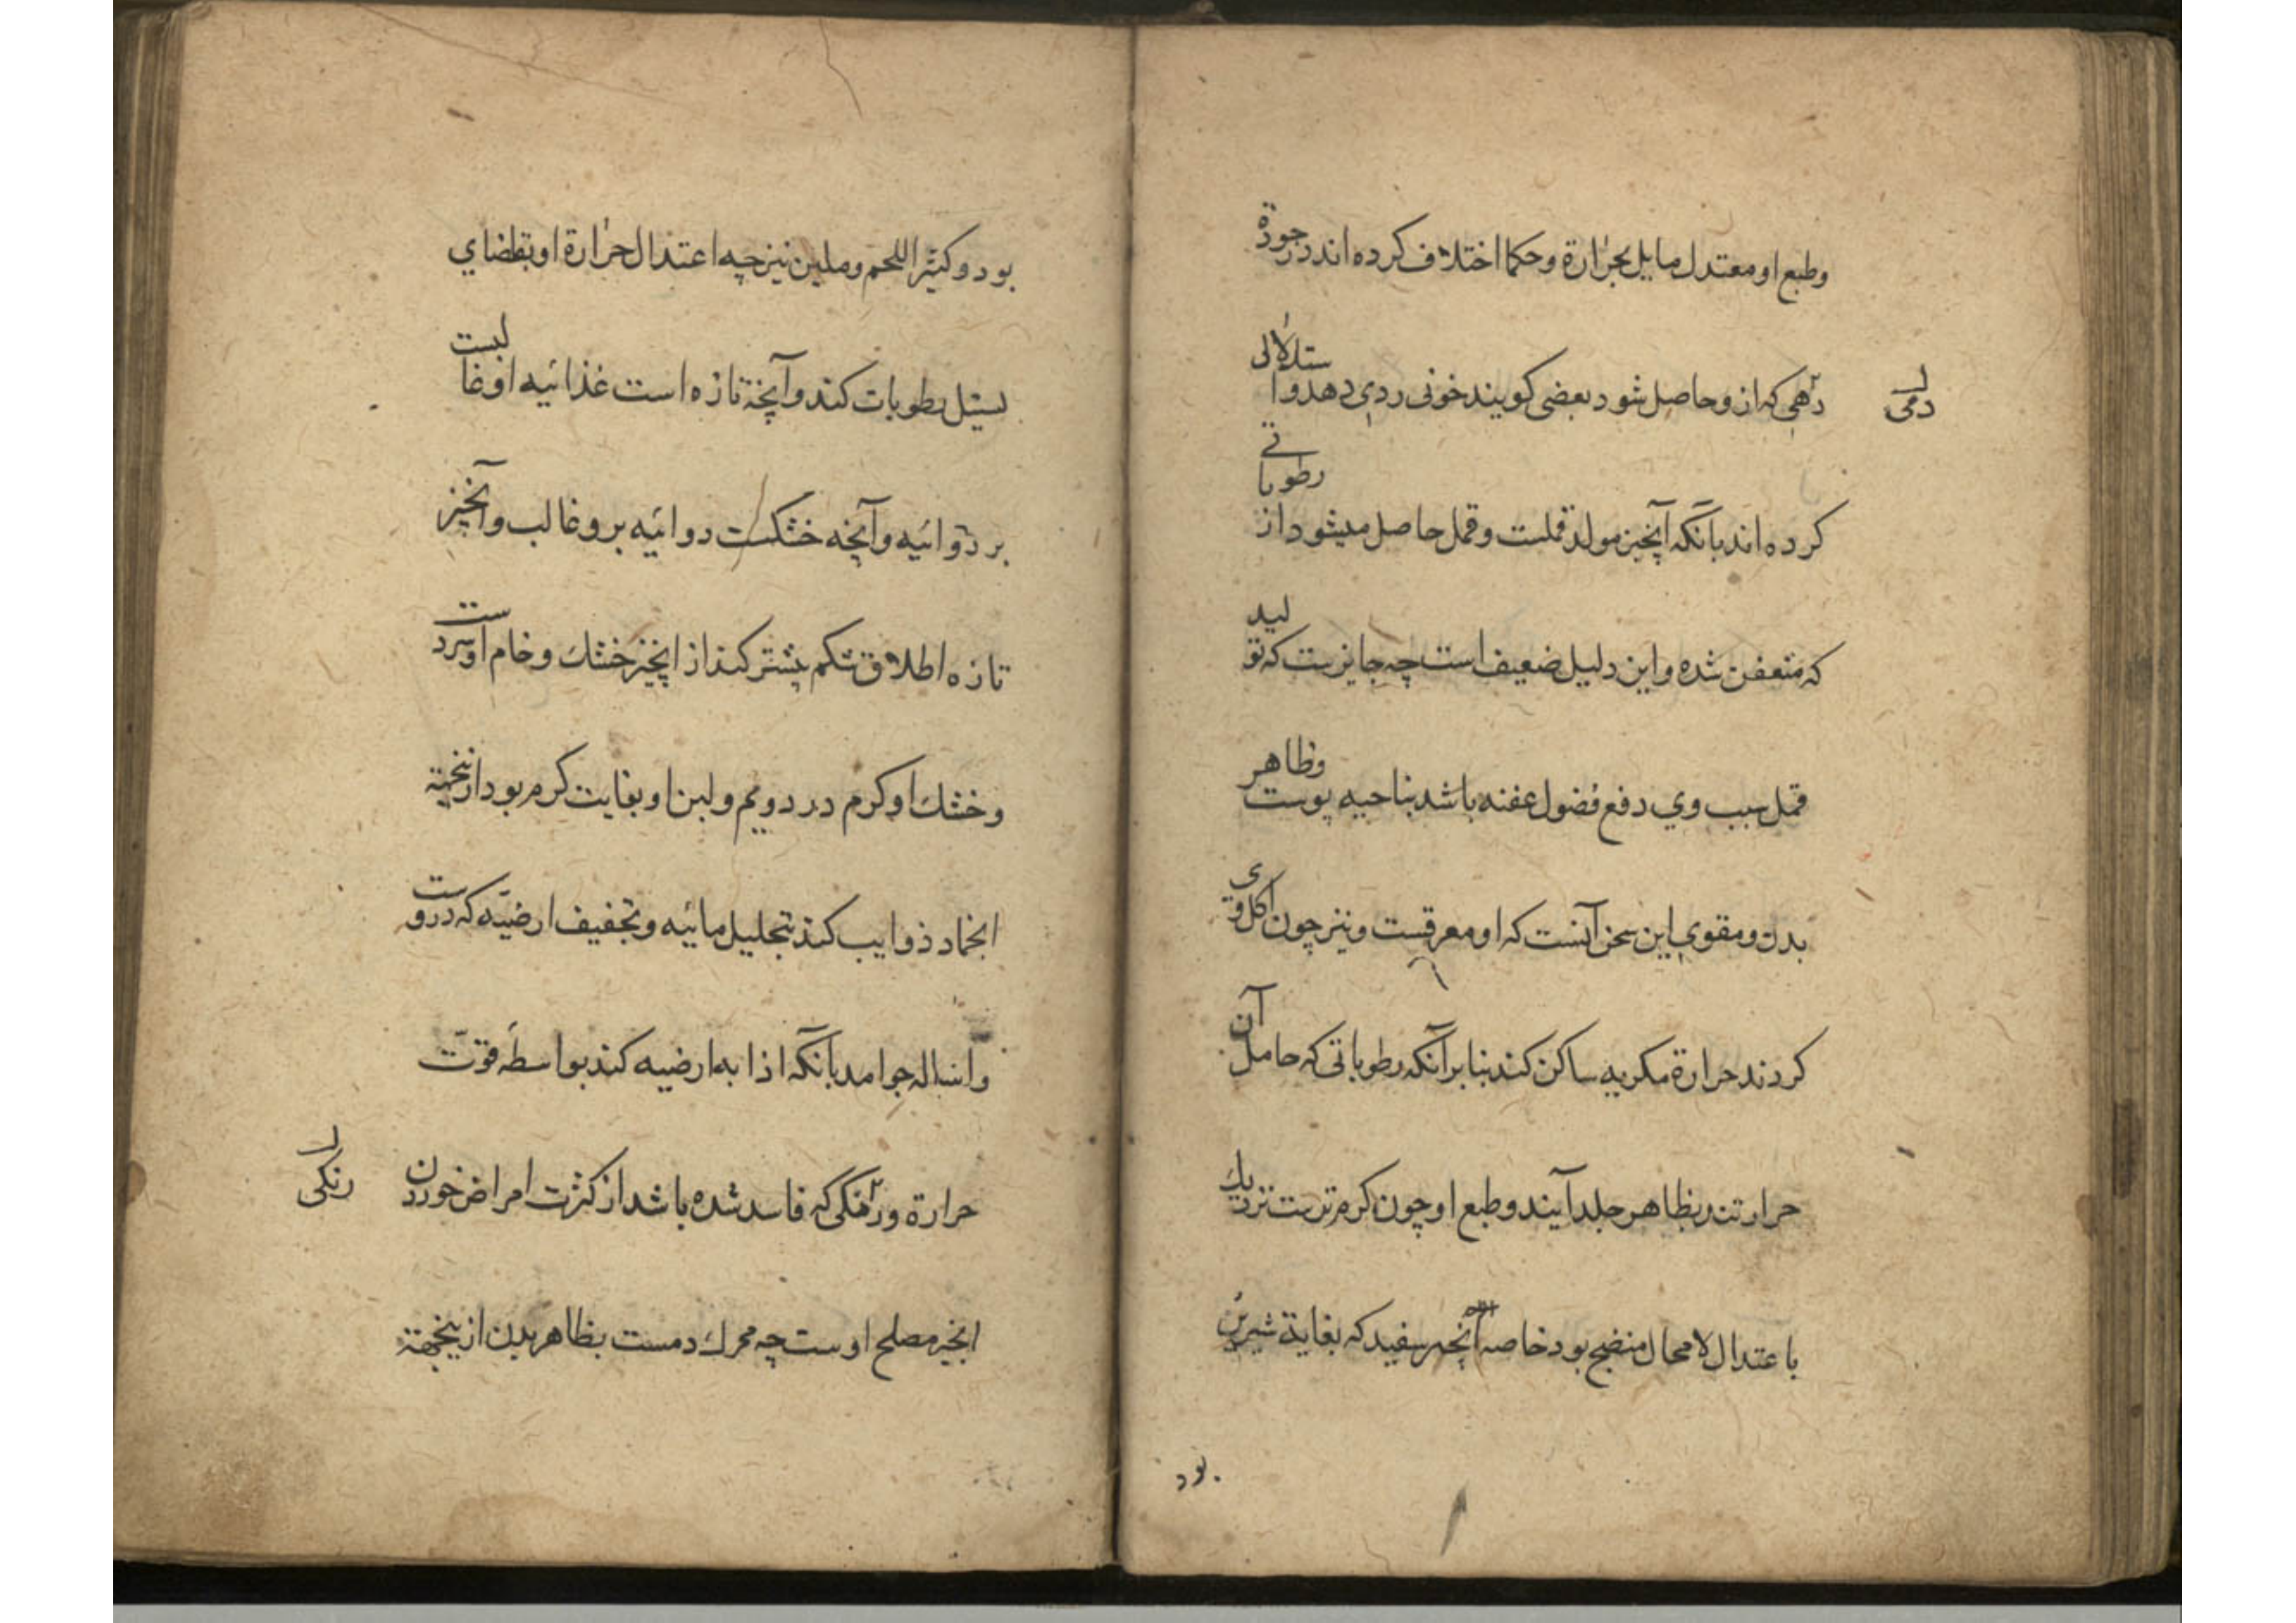 وطبع او معتدل مایل بحرارة وحکما اختلاف کرده اند در جودة
دهی که ازو حاصل شود بعضی کویند خونی ردی دهد واستدلالی
دمی
کرده اند بآنکه آنجیز مولد قملست وقمل حاصل میشود از رطوباتی
که متعفن شده واین دلیل ضعیف است چه جایزست که تولید
قمل سبب وی دفع فضول عفنه باشد بناحیه پوست وظاهر
بدن ومقوی این سخن آنست که او معرقست ونیز چون اکل وی
کردند حرارة مکربه ساکن کند بنابر آنکه رطوباتی که حامل آن
حرارتند بظاهر جلد آیند وطبع او چون کرم ترست نزدیك
باعتدال لامحال منضج بود خاصه سفید که بغایة شیرین
بود
بود وکثیر اللحم وملین نیز چه اعتدال حرارة او تقاضای
لسیل رطوبات کند وآنچه تازه است غذائیه او غالبست
بر دوائیه وآنچه خشکست دوائیه برو غالب وانخیز
تازه اطلاق شکم پشتر کند از انجیز خشك وخام او سردست
وخشك او کرم در دویم ولبن او بغایت کرم بود ازینجهته
انجماد ذوایب کند بتحلیل مائیه وتجفیف ارضیّه که دروست
واساله جوامد بآنکه اذابه ارضیه کند بواسطه قوّت
حرارة ورنکی که فاسد شده باشد از کثرت امراض خوردن
رنکی
انجیر مصلح اوست چه محرك دمست بظاهر بدن ازینجهته